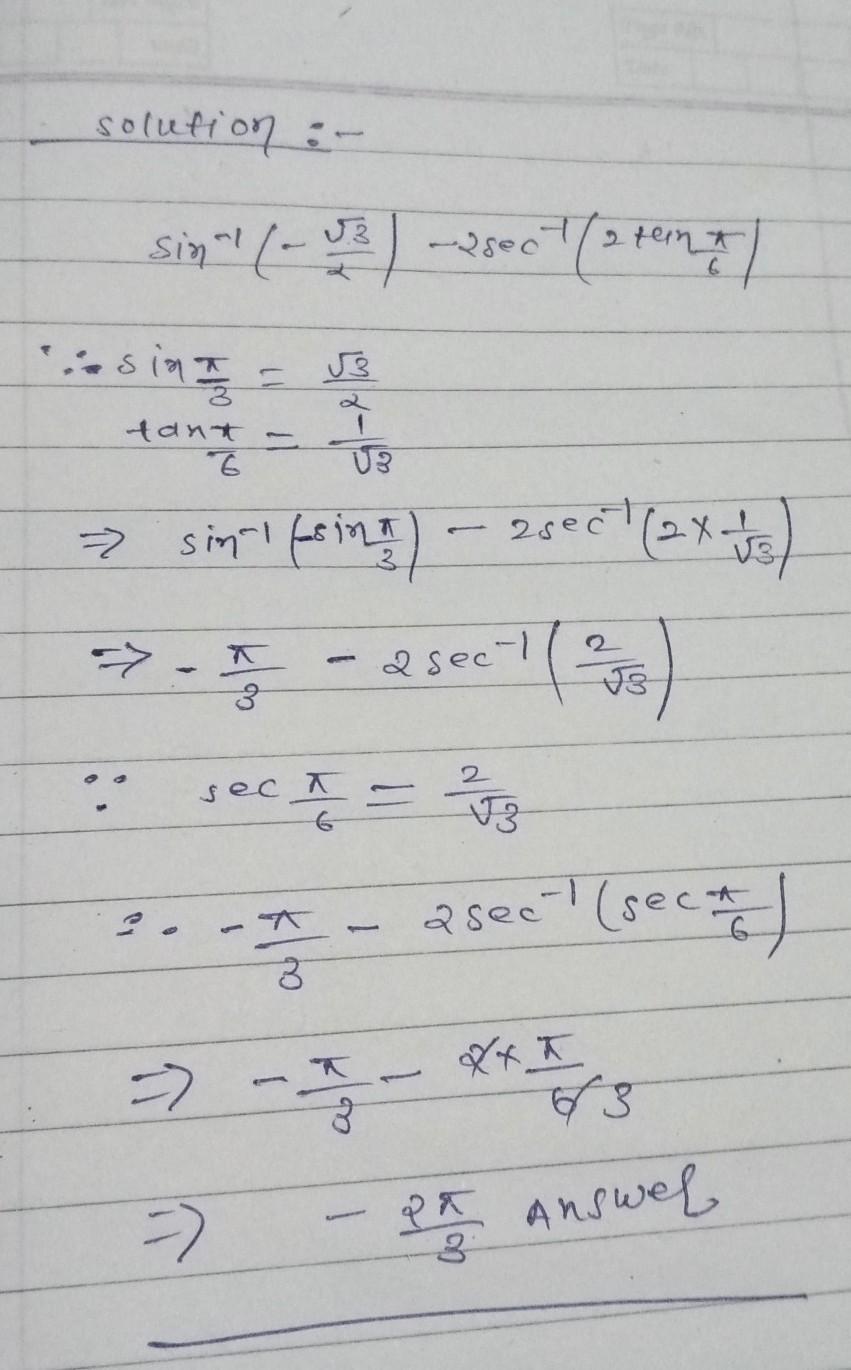 solution :-
sin⁻¹(-√3/2) - 2sec⁻¹(2 tan π/6)
∵ sin π/3 = √3/2
tan π/6 = 1/√3
⇒ sin⁻¹(-sin π/3) - 2sec⁻¹(2 × 1/√3)
⇒ - π/3 - 2 sec⁻¹(2/√3)
∵ sec π/6 = 2/√3
∴ - π/3 - 2sec⁻¹(sec π/6)
⇒ - π/3 - 2 × π/6 3
⇒ - 2π/3 Answer